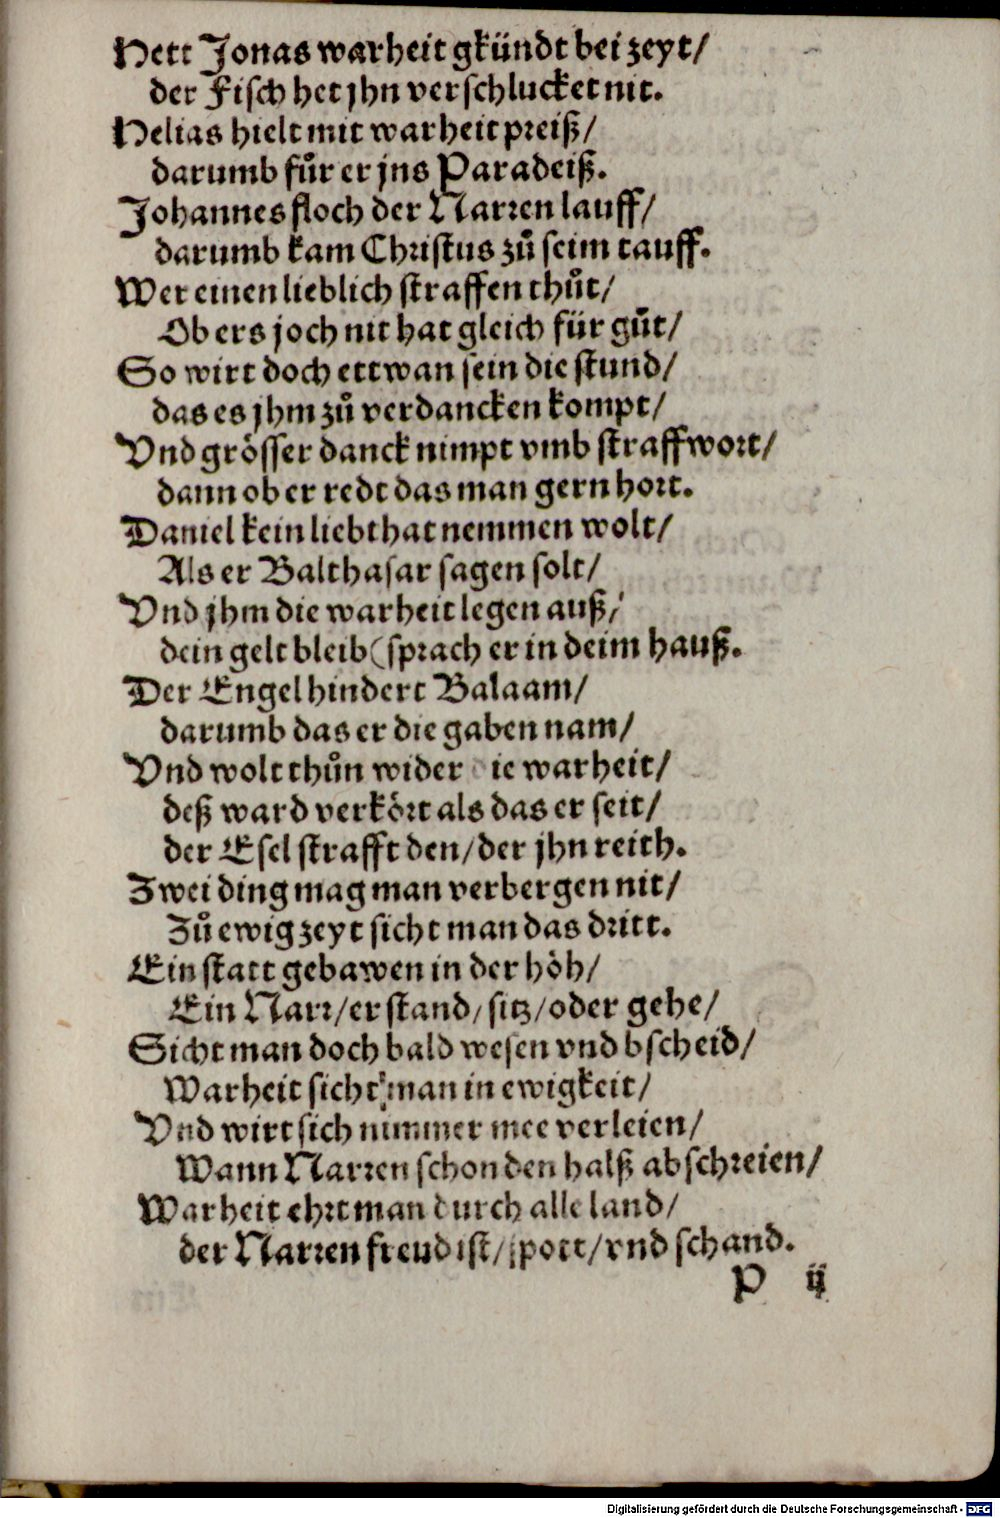 Hett Jonas warheit gkündt bei zeyt/
der Fisch het jhn verschlucket nit.
Helias hielt mit warheit preiß/
darumb fůr er jns Paradeiß.
Johannes floch der Narren lauff/
darumb kam Christus zů seim tauff.
Wer einen lieblich straffen thůt/
Ob ers joch nit hat gleich für gůt/
So wirt doch ettwan sein die stund/
das es jhm zů verdancken kompt/
Vnd grösser danck nimpt vmb straffwort/
dann ob er redt das man gern hort.
Daniel kein liebthat nemmen wolt/
Als er Balthasar sagen solt/
Vnd jhm die warheit legen auß/
dein gelt bleib (sprach er in deim hauß.
Der Engel hindert Balaam/
darumb das er die gaben nam/
Vnd wolt thůn wider ie warheit/
deß ward verkört als das er seit/
der Esel strafft den/der jhn reith.
Zwei ding mag man verbergen nit/
Zů ewig zeyt sicht man das dritt.
Ein statt gebawen in der höh/
Ein Narr/er stand/sitz/oder gehe/
Sicht man doch bald wesen vnd bscheid/
Warheit sicht man in ewigkeit/
Vnd wirt sich nimmer mee verleien/
Wann Narren schon den halß abschreien/
Warheit ehrt man durch alle land/
der Narren freud ist/spott/vnd schand.
P ij
Digitalisierung gefördert durch die Deutsche Forschungsgemeinschaft - DFG